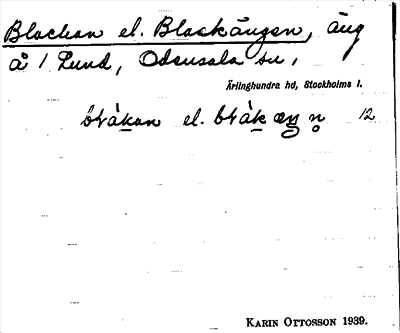 Blackan el. Blackängen, äng
å 1 Lund, Odensala sn,
Ärlinghundra hd, Stockholms l.
el. 12
KARIN OTTOSSON 1939.